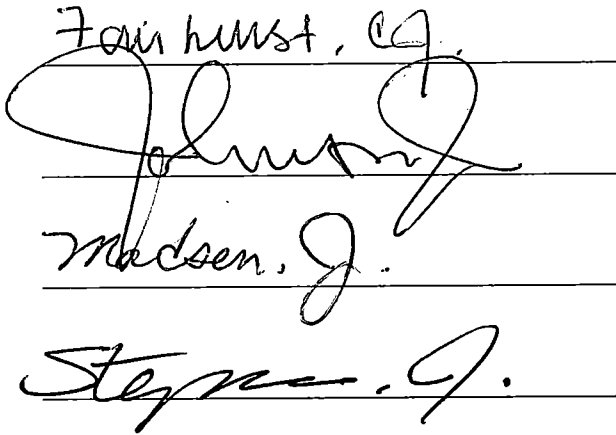 Fairhurst, CJ.
Johnson J
Madsen, J.
Stephens, J.